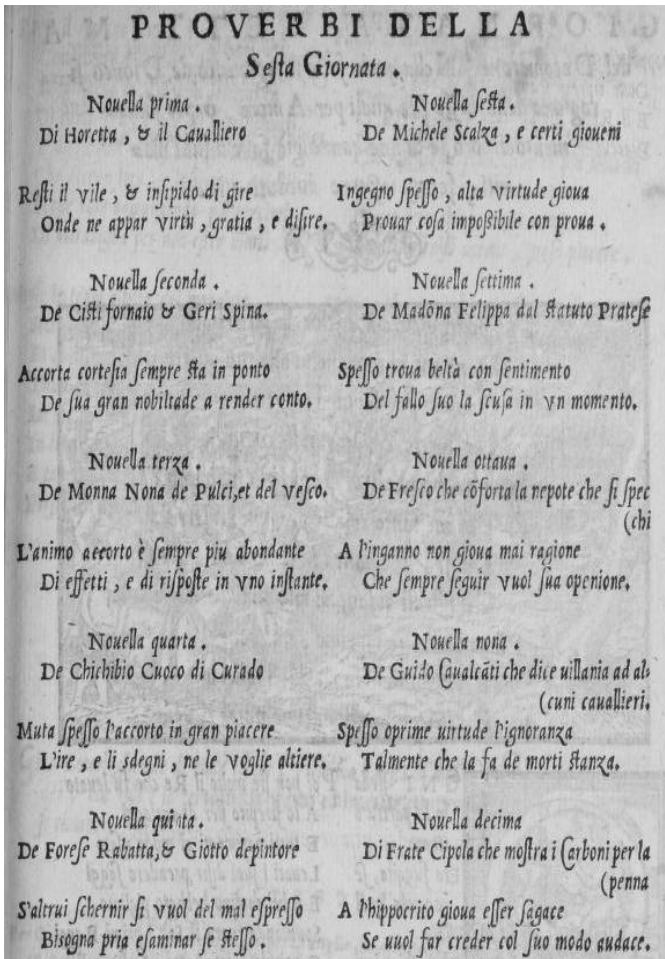 PROVERBI DELLA
Sesta Giornata.
Nouella prima.
Di Horetta, & il Caualliero
Resti il vile, & insipido di gire
Onde ne appar virtù, gratia, e disire.
Nouella seconda.
De Cisti fornaio & Geri Spina.
Accorta cortesia sempre sta in ponto
De sua gran nobiltade a render conto.
Nouella terza.
De Monna Nona de Pulci, et del vesco.
L'animo accorto è sempre piu abondante
Di effetti, e di risposte in vno instante.
Nouella quarta.
De Chichibio Cuoco di Curado
Muta spesso l'accorto in gran piacere
L'ire, e li sdegni, ne le voglie altiere.
Nouella quinta.
De Forese Rabatta, & Giotto depintore
S'altrui schernir si vuol del mal espresso
Bisogna pria esaminar se stesso.
Nouella sesta.
De Michele Scalza, e certi gioueni
Ingegno spesso, alta virtude gioua
Prouar cosa impossibile con proua.
Nouella settima.
De Madōna Felippa dal statuto Pratese
Spesso troua beltà con sentimento
Del fallo suo la scusa in vn momento.
Nouella ottaua.
De Fresco che cōforta la nepote che si spec
(chi
A l'inganno non gioua mai ragione
Che sempre seguir vuol sua openione.
Nouella nona.
De Guido Caualcāti che dice uillania ad al-
(cuni cauallieri.
Spesso oprime uirtude l'ignoranza
Talmente che la fa de morti stanza.
Nouella decima
Di Frate Cipola che mostra i Carboni per la
(penna
A l'hippocrito gioua esser sagace
Se uuol far creder col suo modo audace.